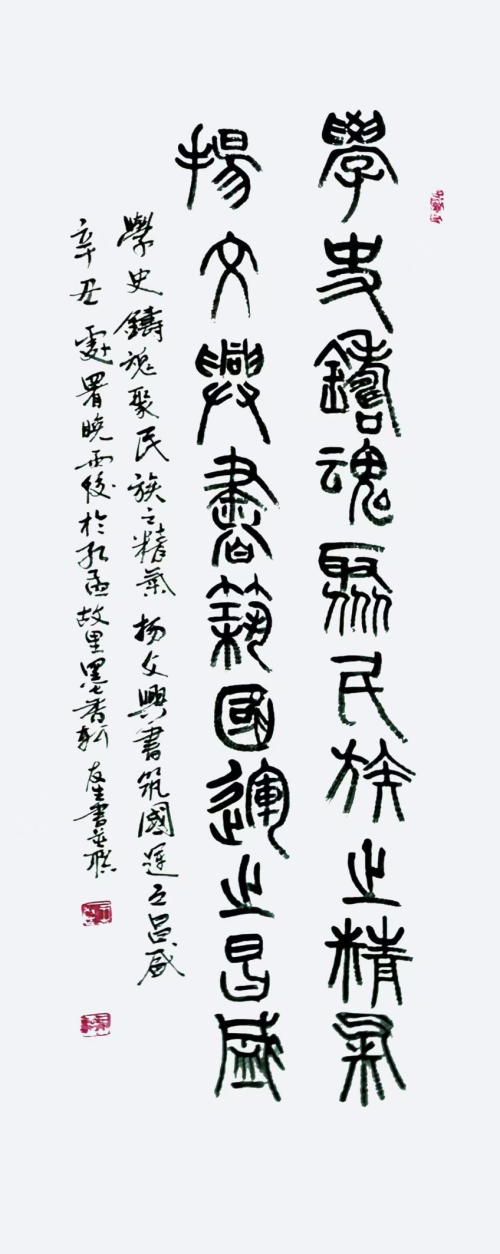 學史鑄魂聚民族之精氣
揚文興書築國運之昌盛
學史鑄魂聚民族之精氣 揚文興書筑國運之昌盛
辛丑處暑曉雨後於孔孟故里墨香軒 友生書並撰